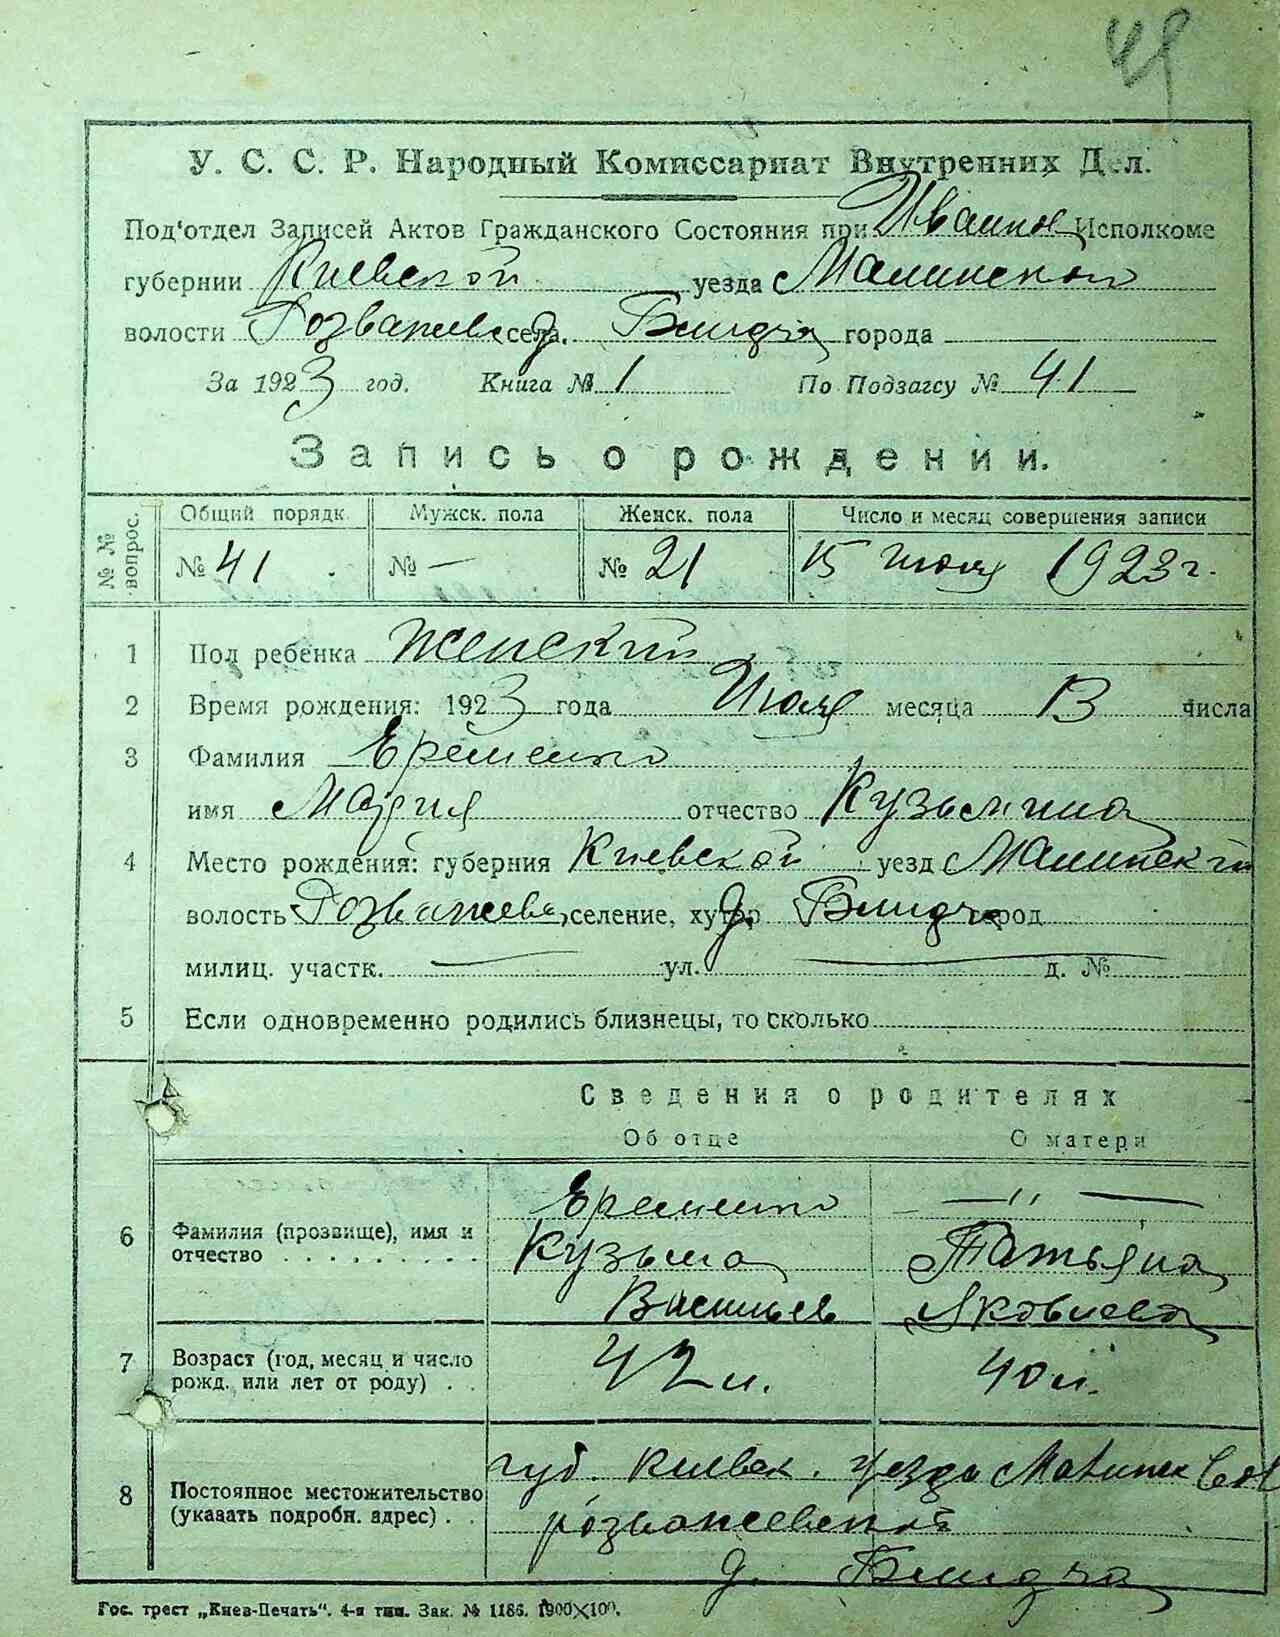 49
У. С. С. Р. Народный Комиссариат Внутренних Дел.
Под'отдел Записей Актов Гражданского Состояния при Исполкоме
губернии Киевской уезда Малинской
волости Розважев села. д. города
За 1923 год. Книга № 1 По Подзагсу № 41
Запись о рождении.
№ № вопрос. Общий порядк. Мужск. пола Женск. пола Число и месяц совершения записи
№ 41 № — № 21 15 июля 1923 г.
1 Пол ребенка Женский
2 Время рождения: 1923 года Июля месяца 13 числа
3 Фамилия Еременко
имя Мария отчество Кузьмина
4 Место рождения: губерния Киевской уезд Малинский
волость Розважев, селение, хутор д. город
милиц. участк. — ул. — д. №
5 Если одновременно родились близнецы, то сколько
Сведения о родителях
Об отце О матери
6 Фамилия (прозвище), имя и отчество Еременко — " —
Кузьма Татьяна
Васильев Яковлева
7 Возраст (год, месяц и число рожд. или лет от роду) 42 л. 40 л.
8 Постоянное местожительство (указать подробн. адрес) губ. Киевск. уезда Малинск вол
розважевской
д.
Гос. трест „Киев-Печать“. 4-я тип. Зак. № 1186. 1900×100.